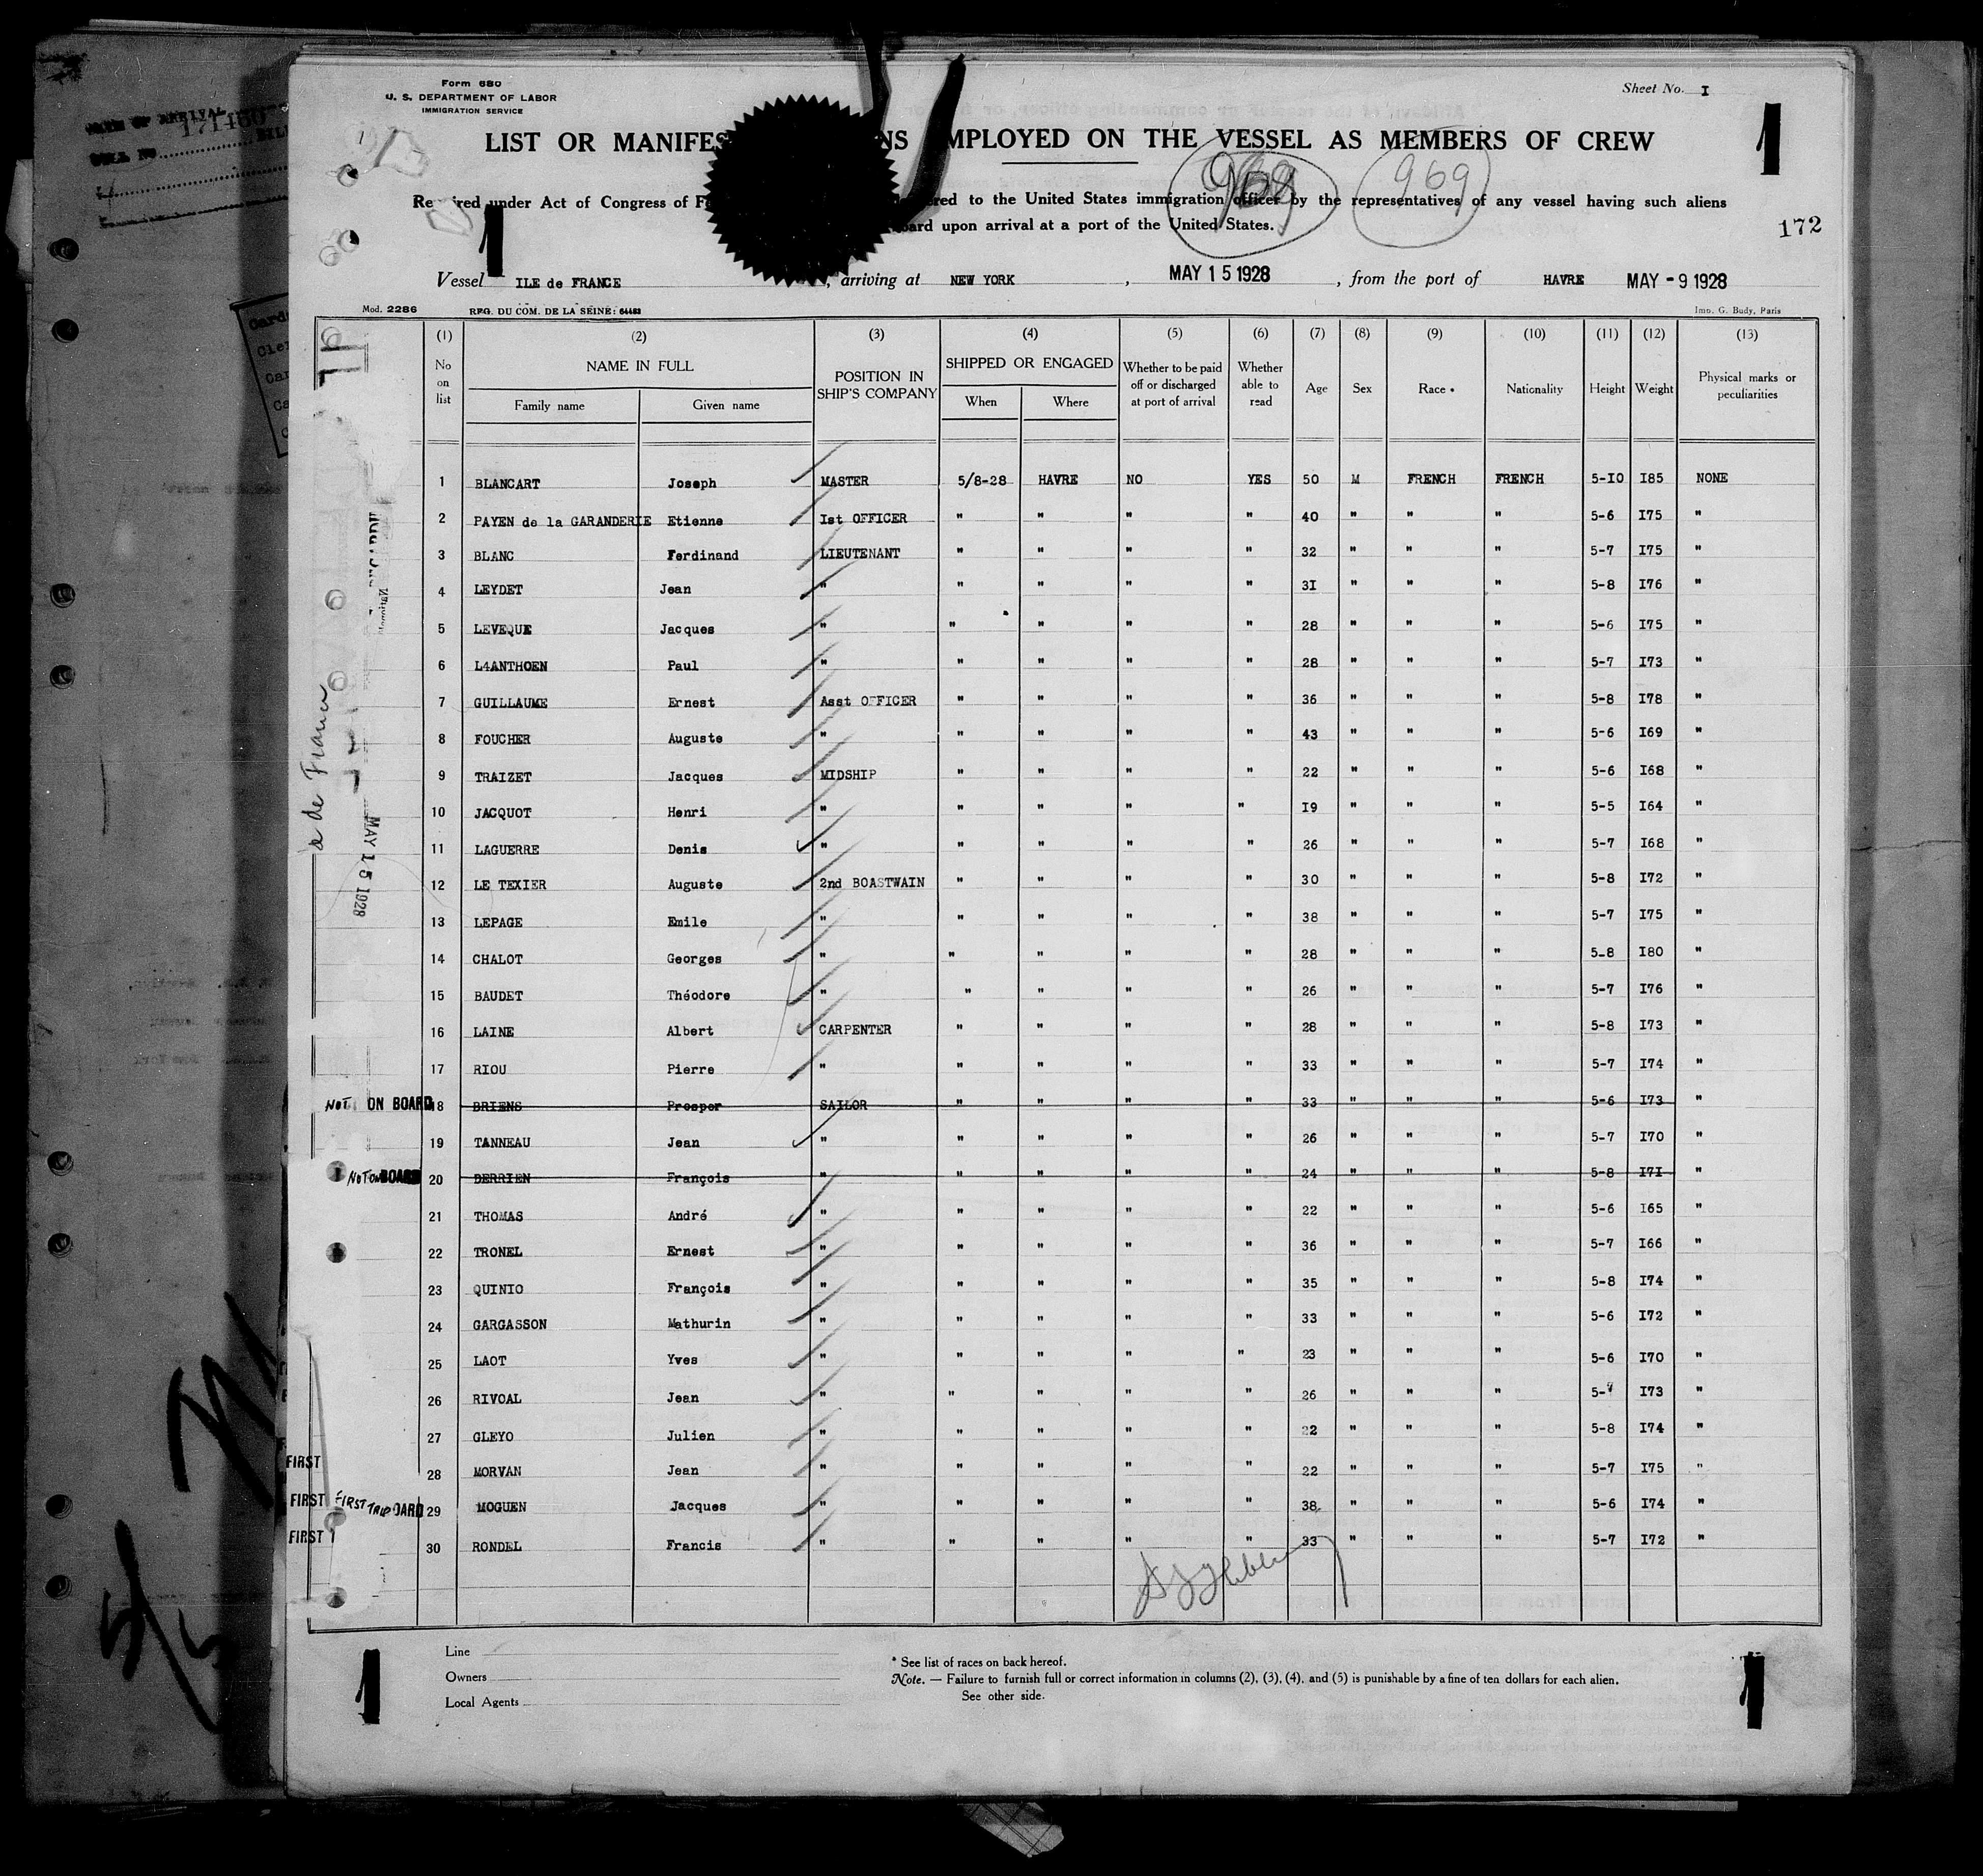 Form 680
U. S. DEPARTMENT OF LABOR
IMMIGRATION SERVICE
Sheet No. I
LIST OR MANIFES NS MPLOYED ON THE VESSEL AS MEMBERS OF CREW
1
969
Required under Act of Congress of F red to the United States immigration officer by the representatives of any vessel having such aliens
ard upon arrival at a port of the United States.
172
1
Vessel ILE de FRANCE , arriving at NEW YORK , MAY 15 1928 , from the port of HAVRE MAY - 9 1928
Mod. 2286 REG. DU COM. DE LA SEINE: 64483 Imp. G. Budy, Paris
(1) (2) (3) (4) (5) (6) (7) (8) (9) (10) (11) (12) (13)
No on list NAME IN FULL Family name Given name POSITION IN SHIP'S COMPANY SHIPPED OR ENGAGED When Where Whether to be paid off or discharged at port of arrival Whether able to read Age Sex Race * Nationality Height Weight Physical marks or peculiarities
1 BLANCART Joseph MASTER 5/8-28 HAVRE NO YES 50 M FRENCH FRENCH 5-10 185 NONE
2 PAYEN de la GARANDERIE Etienne Ist OFFICER " " " " 40 " " " 5-6 I75 "
3 BLANC Ferdinand LIEUTENANT " " " " 32 " " " 5-7 I75 "
4 LEYDET Jean " " " " " 3I " " " 5-8 I76 "
5 LEVEQUE Jacques " " " " " 28 " " " 5-6 I75 "
6 L4ANTHOEN Paul " " " " " 28 " " " 5-7 I73 "
7 GUILLAUME Ernest Asst OFFICER " " " " 36 " " " 5-8 I78 "
8 FOUCHER Auguste " " " " " 43 " " " 5-6 I69 "
9 TRAIZET Jacques MIDSHIP " " " " 22 " " " 5-6 I68 "
10 JACQUOT Henri " " " " " I9 " " " 5-5 I64 "
11 LAGUERRE Denis " " " " " 26 " " " 5-7 I68 "
12 LE TEXIER Auguste 2nd BOASTWAIN " " " " 30 " " " 5-8 I72 "
13 LEPAGE Emile " " " " " 38 " " " 5-7 I75 "
14 CHALOT Georges " " " " " 28 " " " 5-8 I80 "
15 BAUDET Théodore " " " " " 26 " " " 5-7 I76 "
16 LAINE Albert CARPENTER " " " " 28 " " " 5-8 I73 "
17 RIOU Pierre " " " " " 33 " " " 5-7 I74 "
NOT ON BOARD 18 BRIENS Prosper SAILOR " " " " 33 " " " 5-6 I73 "
19 TANNEAU Jean " " " " " 26 " " " 5-7 I70 "
NOT ON BOARD 20 DERRIEN François " " " " " 24 " " " 5-8 I7I "
21 THOMAS André " " " " " 22 " " " 5-6 I65 "
22 TRONEL Ernest " " " " " 36 " " " 5-7 I66 "
23 QUINIO François " " " " " 35 " " " 5-8 I74 "
24 GARGASSON Mathurin " " " " " 33 " " " 5-6 I72 "
25 LAOT Yves " " " " " 23 " " " 5-6 I70 "
26 RIVOAL Jean " " " " " 26 " " " 5-7 I73 "
27 GLEYO Julien " " " " " 22 " " " 5-8 I74 "
FIRST 28 MORVAN Jean " " " " " 22 " " " 5-7 I75 "
FIRST FIRST TRIP OARD 29 MOGUEN Jacques " " " " " 38 " " " 5-6 I74 "
FIRST 30 RONDEL Francis " " " " " 33 " " " 5-7 I72 "
de France
MAY 15 1928
Line
Owners
Local Agents
* See list of races on back hereof.
Note. — Failure to furnish full or correct information in columns (2), (3), (4), and (5) is punishable by a fine of ten dollars for each alien.
See other side.
1
1
5/15